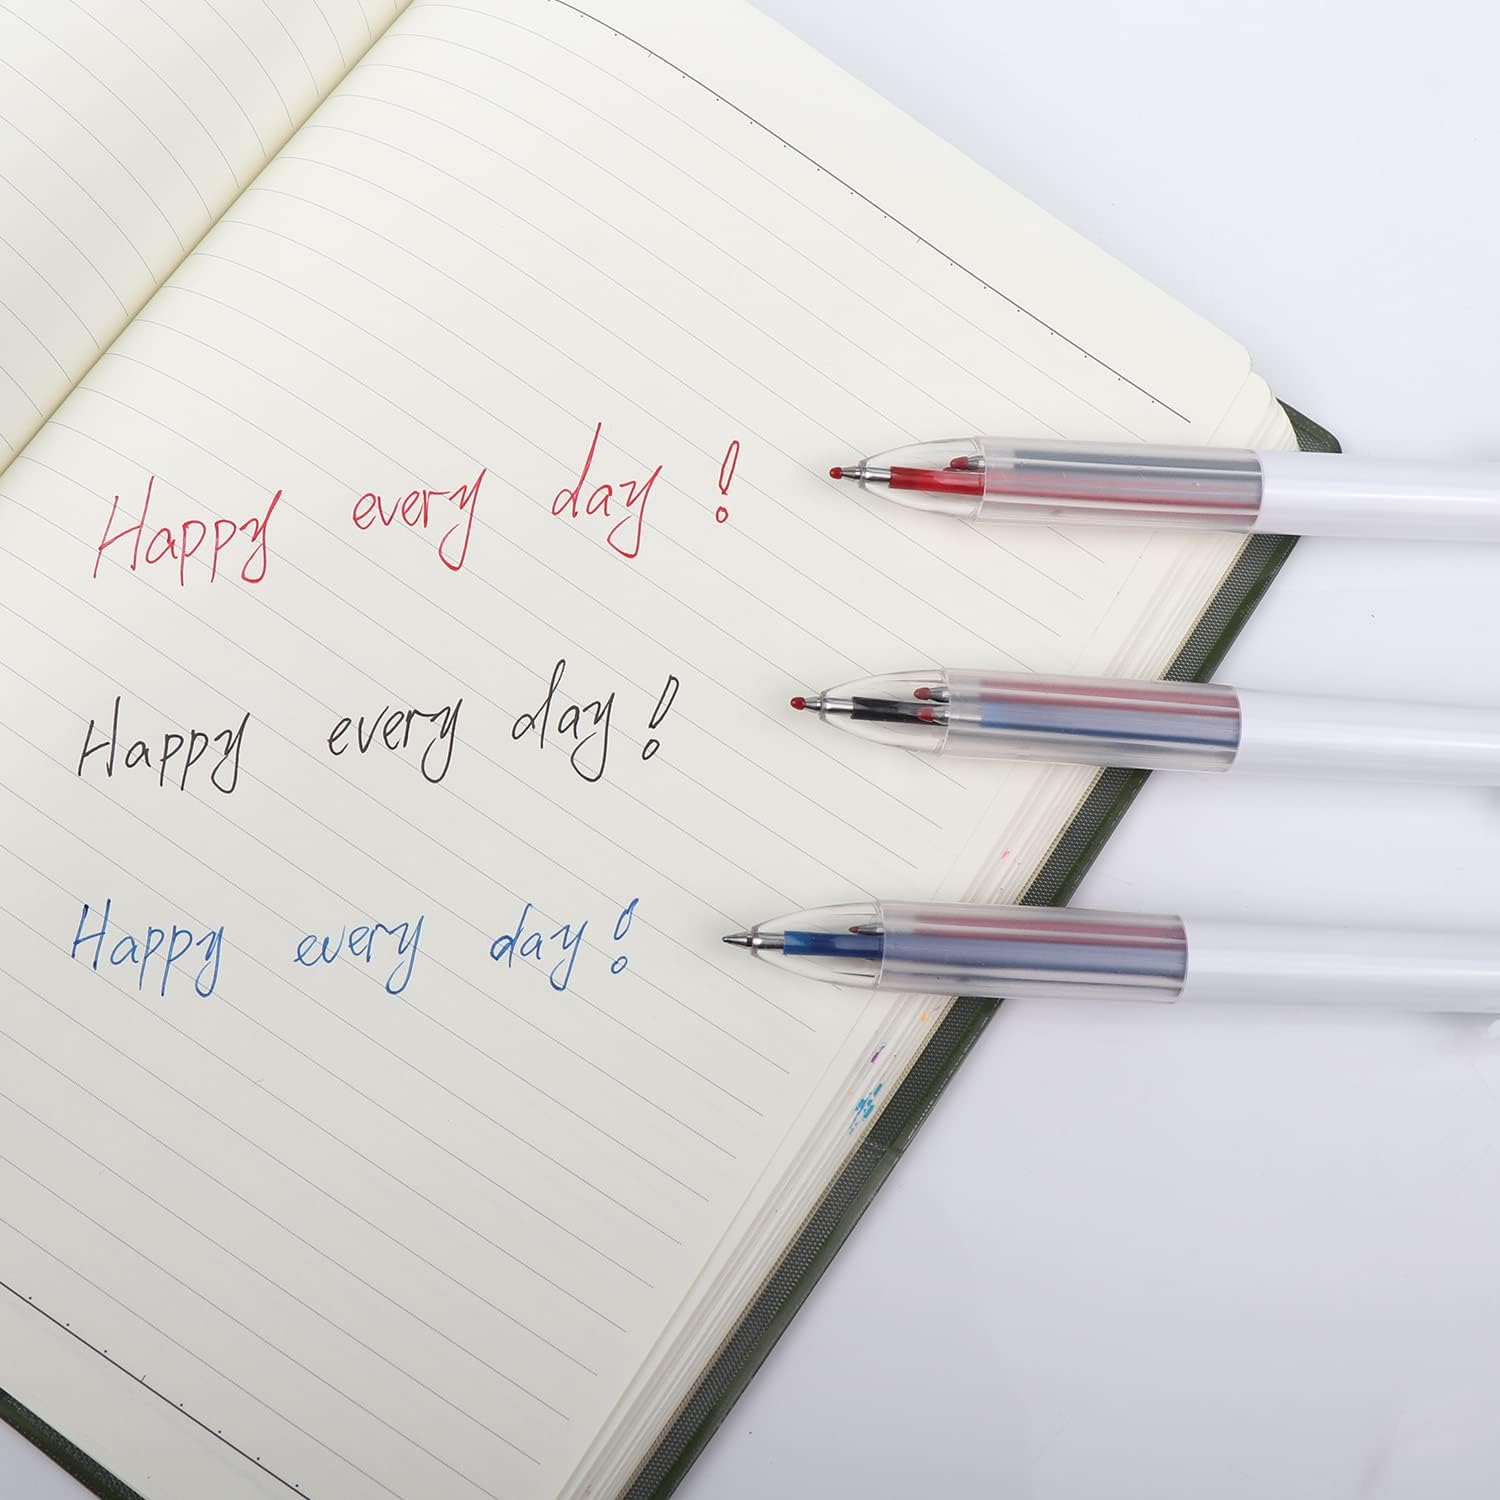 Happy every day!
Happy every day!
Happy every day!